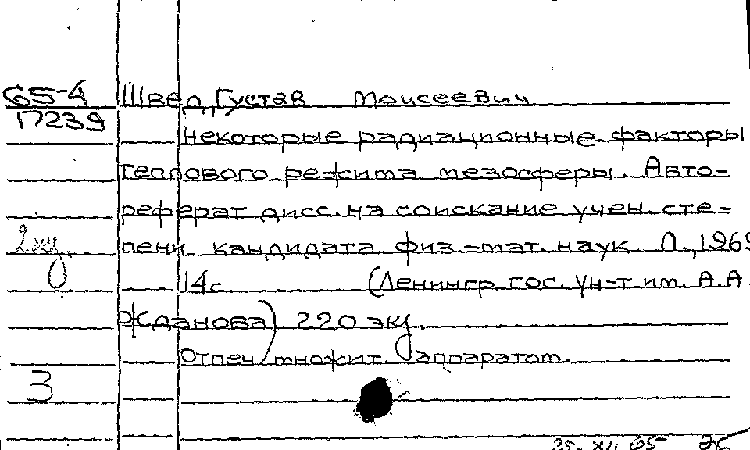 65-4 Швед, Густав Моисеевич
17239
Некоторые радиационные факторы
теплового режима мезосферы. Авто-
реферат дисс. на соискание учен. сте-
2 экз
пени кандидата физ.-мат. наук. Л., 196
14с (Ленингр. гос. ун-т им. А.А.
Жданова) 220 экз.
Отпеч. множит. аппаратом.
3
25. XII 65